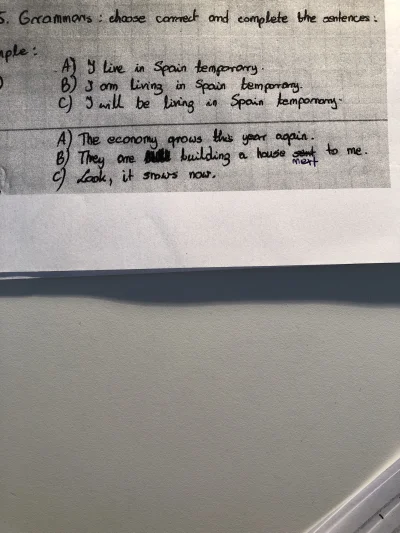 5. Grammar: choose correct and complete the sentences:
mple:
A) I live in Spain temporary.
B) I am living in Spain temporary.
C) I will be living in Spain temporary.
A) The economy grows this year again.
B) They are building a house next to me.
C) Look, it snows now.